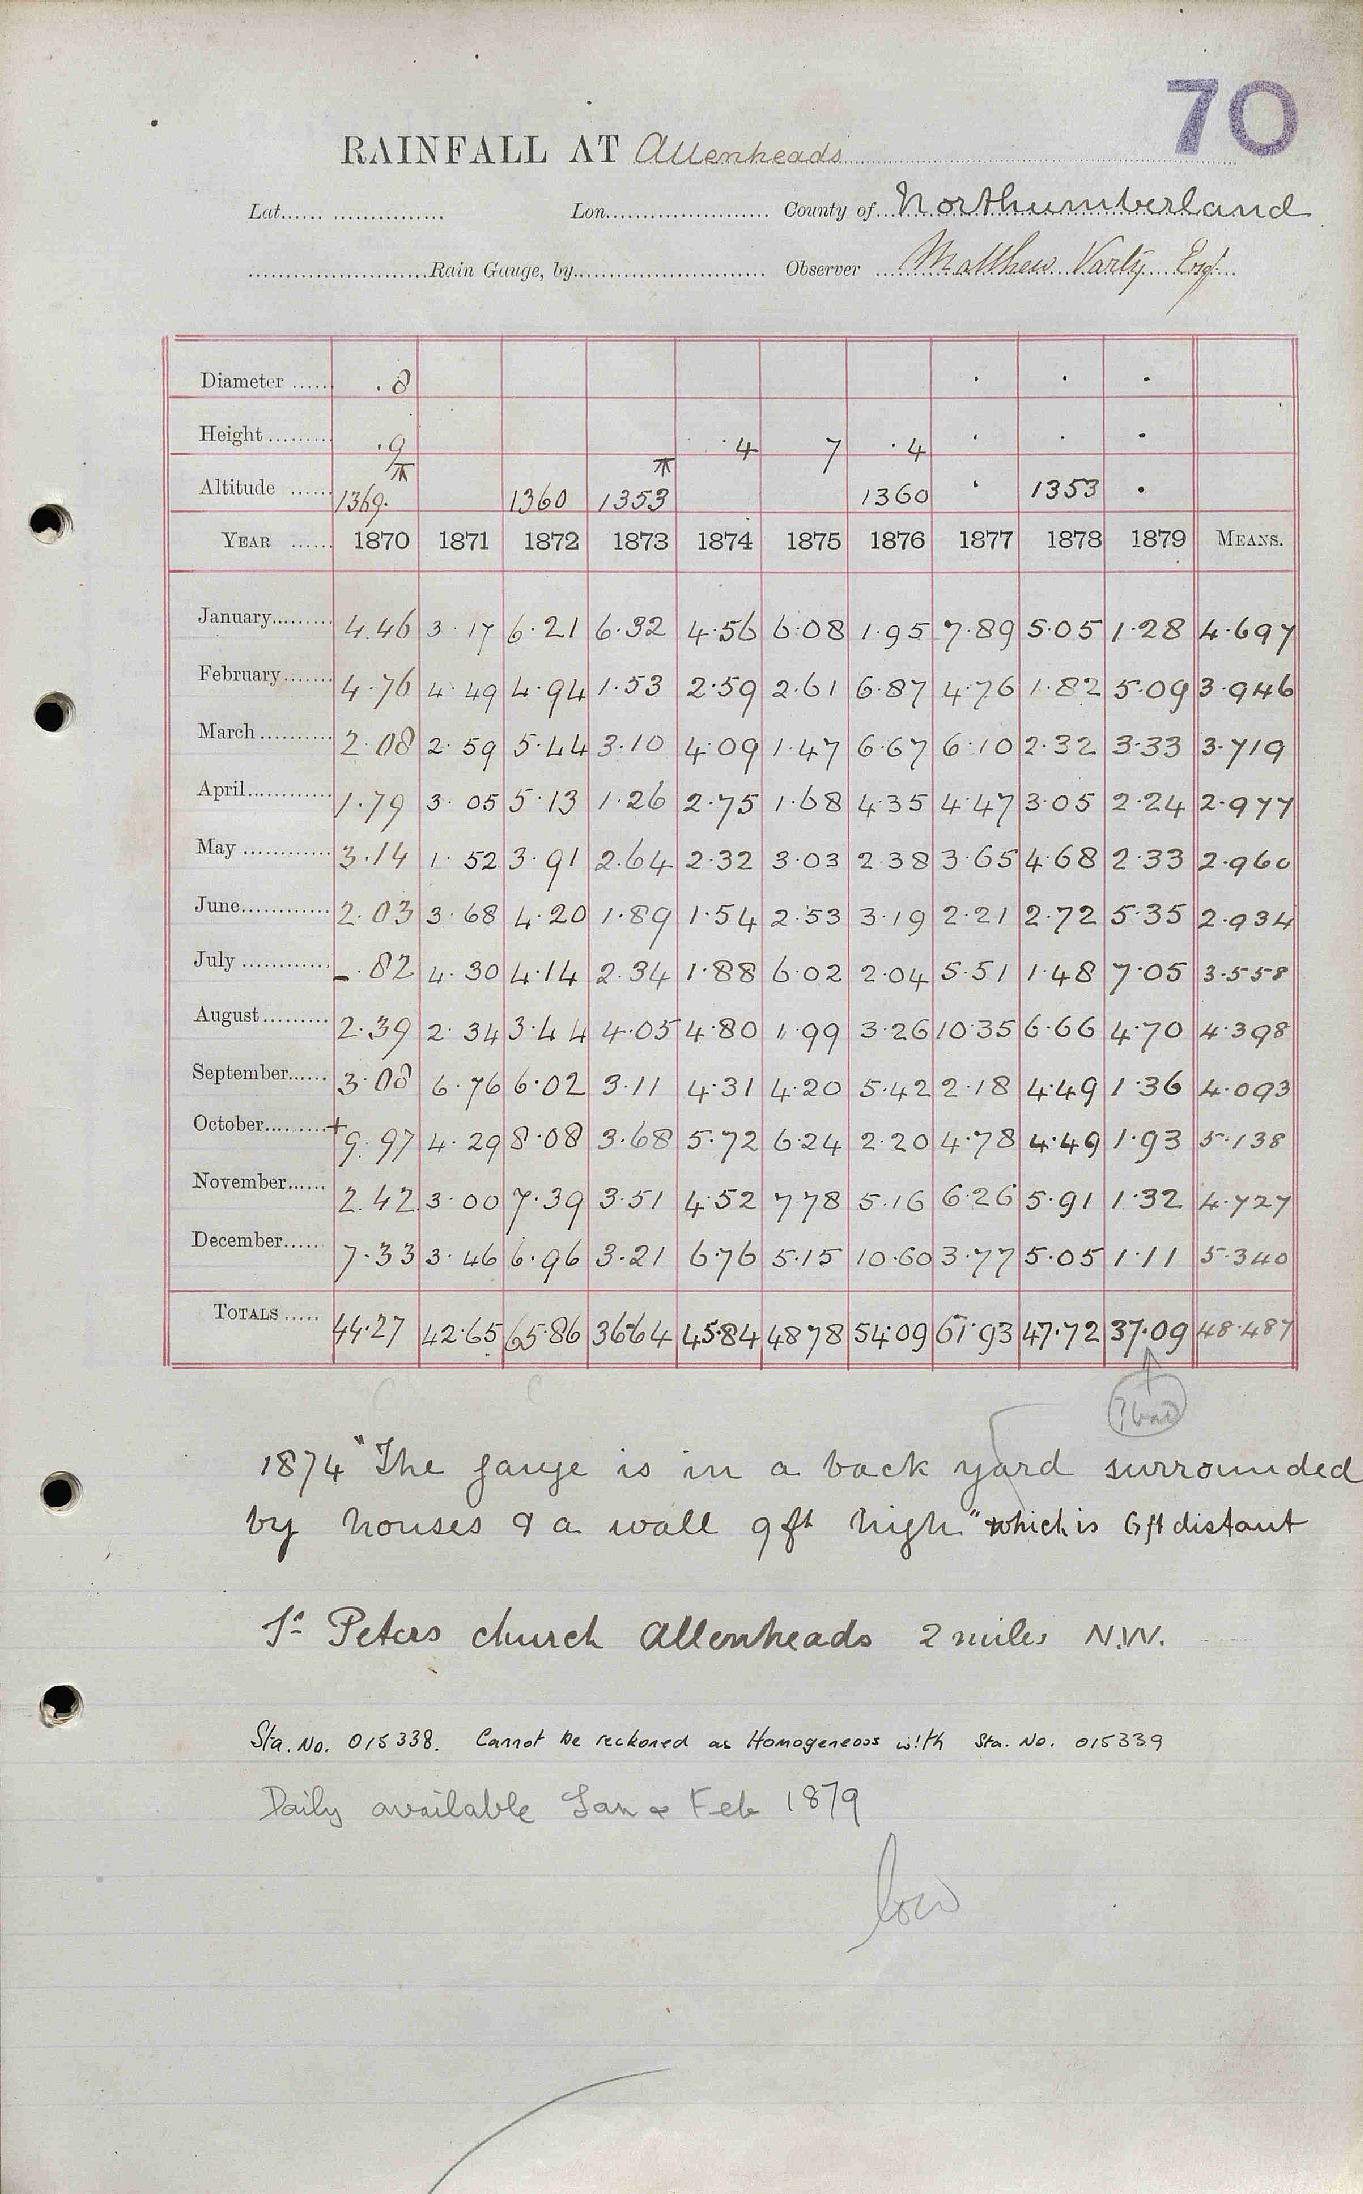 70
RAINFALL AT Allenheads
Lat. Lon. County of Northumberland
Rain Gauge, by Observer Matthew Varty Esqr.
Diameter .8
Height .9 4 7 .4
Altitude 1369. 1360 1353 1360 1353
YEAR 1870 1871 1872 1873 1874 1875 1876 1877 1878 1879 MEANS.
January 4.46 3.17 6.21 6.32 4.56 6.08 1.95 7.89 5.05 1.28 4.697
February 4.76 4.49 4.94 1.53 2.59 2.61 6.87 4.76 1.82 5.09 3.946
March 2.08 2.59 5.44 3.10 4.09 1.47 6.67 6.10 2.32 3.33 3.719
April 1.79 3.05 5.13 1.26 2.75 1.68 4.35 4.47 3.05 2.24 2.977
May 3.14 1.52 3.91 2.64 2.32 3.03 2.38 3.65 4.68 2.33 2.960
June 2.03 3.68 4.20 1.89 1.54 2.53 3.19 2.21 2.72 5.35 2.934
July -.82 4.30 4.14 2.34 1.88 6.02 2.04 5.51 1.48 7.05 3.558
August 2.39 2.34 3.44 4.05 4.80 1.99 3.26 10.35 6.66 4.70 4.398
September 3.08 6.76 6.02 3.11 4.31 4.20 5.42 2.18 4.49 1.36 4.093
October +9.97 4.29 8.08 3.68 5.72 6.24 2.20 4.78 4.49 1.93 5.138
November 2.42 3.00 7.39 3.51 4.52 7.78 5.16 6.26 5.91 1.32 4.727
December 7.33 3.46 6.96 3.21 6.76 5.15 10.60 3.77 5.05 1.11 5.340
TOTALS 44.27 42.65 65.86 36.64 45.84 48.78 54.09 61.93 47.72 37.09 48.487
? bad
1874 "The gauge is in a back yard surrounded
by houses & a wall 9ft high" which is 6ft distant
St Peters church Allenheads 2 miles N.W.
Sta. No. 015338. Cannot be reckoned as Homogeneous with Sta. No. 015339
Daily available Jan & Feb 1879
low